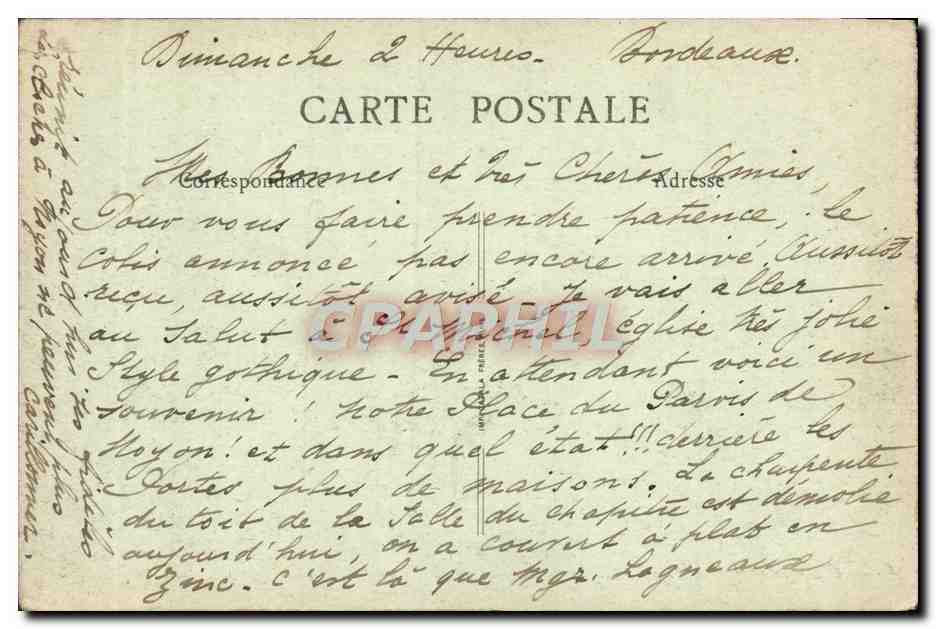 Dimanche 2 Heures. Bordeaux.
CARTE POSTALE
Correspondance Adresse
Mes Bonnes et très Chères Amies,
Pour vous faire prendre patience, le
colis annoncé pas encore arrivé. Aussitôt
reçu, aussitôt avisé. Je vais aller
au Salut à St Michel, Église très jolie
Style gothique - En attendant voici un
souvenir ! Notre Place du Parvis de
Noyon ! et dans quel état !!! derrière les
Portes plus de maisons. La charpente
du toit de la Salle du chapitre est démolie
aujourd'hui, on a couvert à plat en
Zinc. C'est là que Mgr. Lagneaux
réunit aujourd'hui ses fidèles
Les cloches à Noyon ne peuvent plus
carillonner.
CPAPHIL
FRÈRES